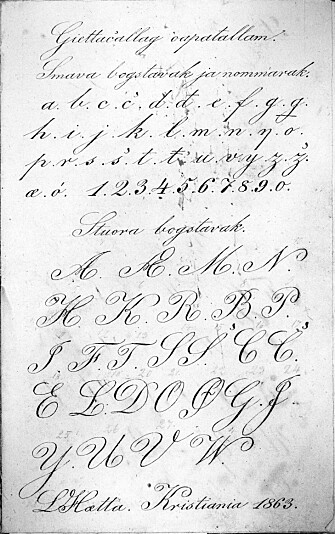 Giettačallag oapatallam.
Smava bogstavak ja nommarak.
a. b. c. č. d. đ. e. f. g. g.
h. i. j. k. l. m. n. ŋ. o.
p. r. s. š. t. ŧ. u. v. y. z. ž.
æ. ó. 1. 2. 3. 4. 5. 6. 7. 8. 9. 0.
Stuora bogstavak.
A. Æ. M. N.
H. K. R. B. P.
I. F. T. S. Š. C. Č.
E. L. D. O. Ø. G. J.
Y. U. V. W.
L. Hætta. Kristiania 1863.